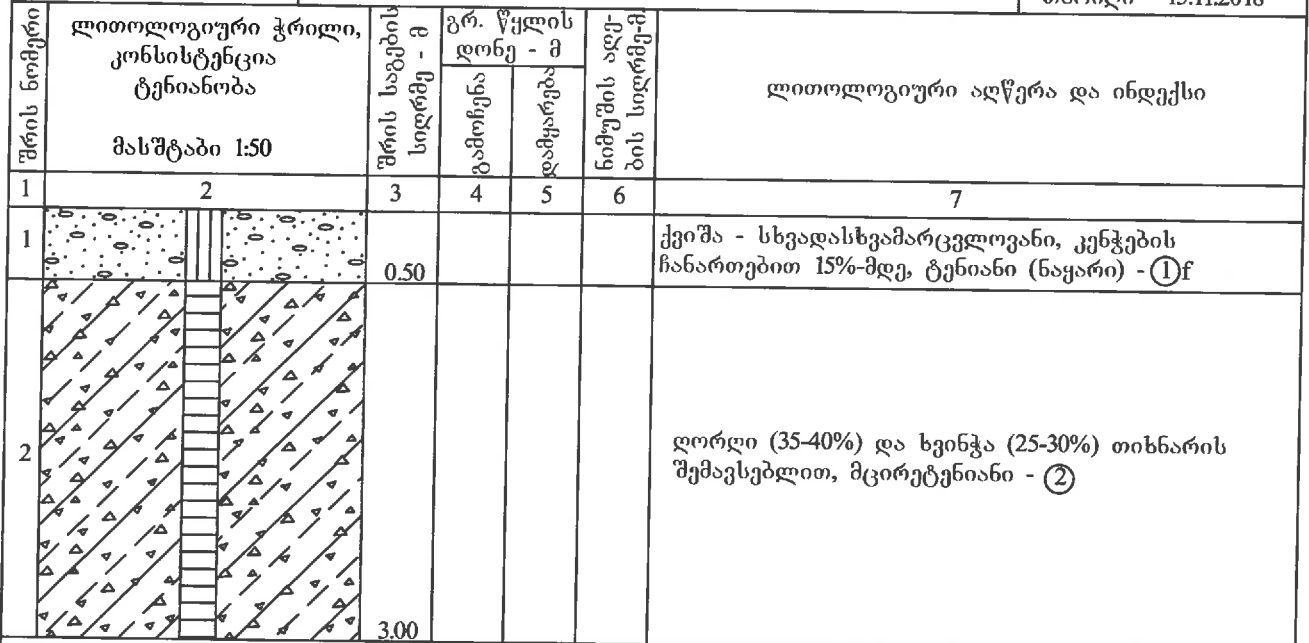 15.11.2018
შრის ნომერი
ლითოლოგიური ჭრილი,
კონსისტენცია
ტენიანობა
მასშტაბი 1:50
შრის საგების
სიღრმე - მ
გრ. წყლის
დონე - მ
გამოჩენა
დამყარება
ნიმუშის აღე-
ბის სიღრმე-მ.
ლითოლოგიური აღწერა და ინდექსი
1 2 3 4 5 6 7
1
0.50
ქვიშა - სხვადასხვამარცვლოვანი, კენჭების
ჩანართებით 15%-მდე, ტენიანი (ნაყარი) - ①f
2
3.00
ღორღი (35-40%) და ხვინჭა (25-30%) თიხნარის
შემავსებლით, მცირეტენიანი - ②